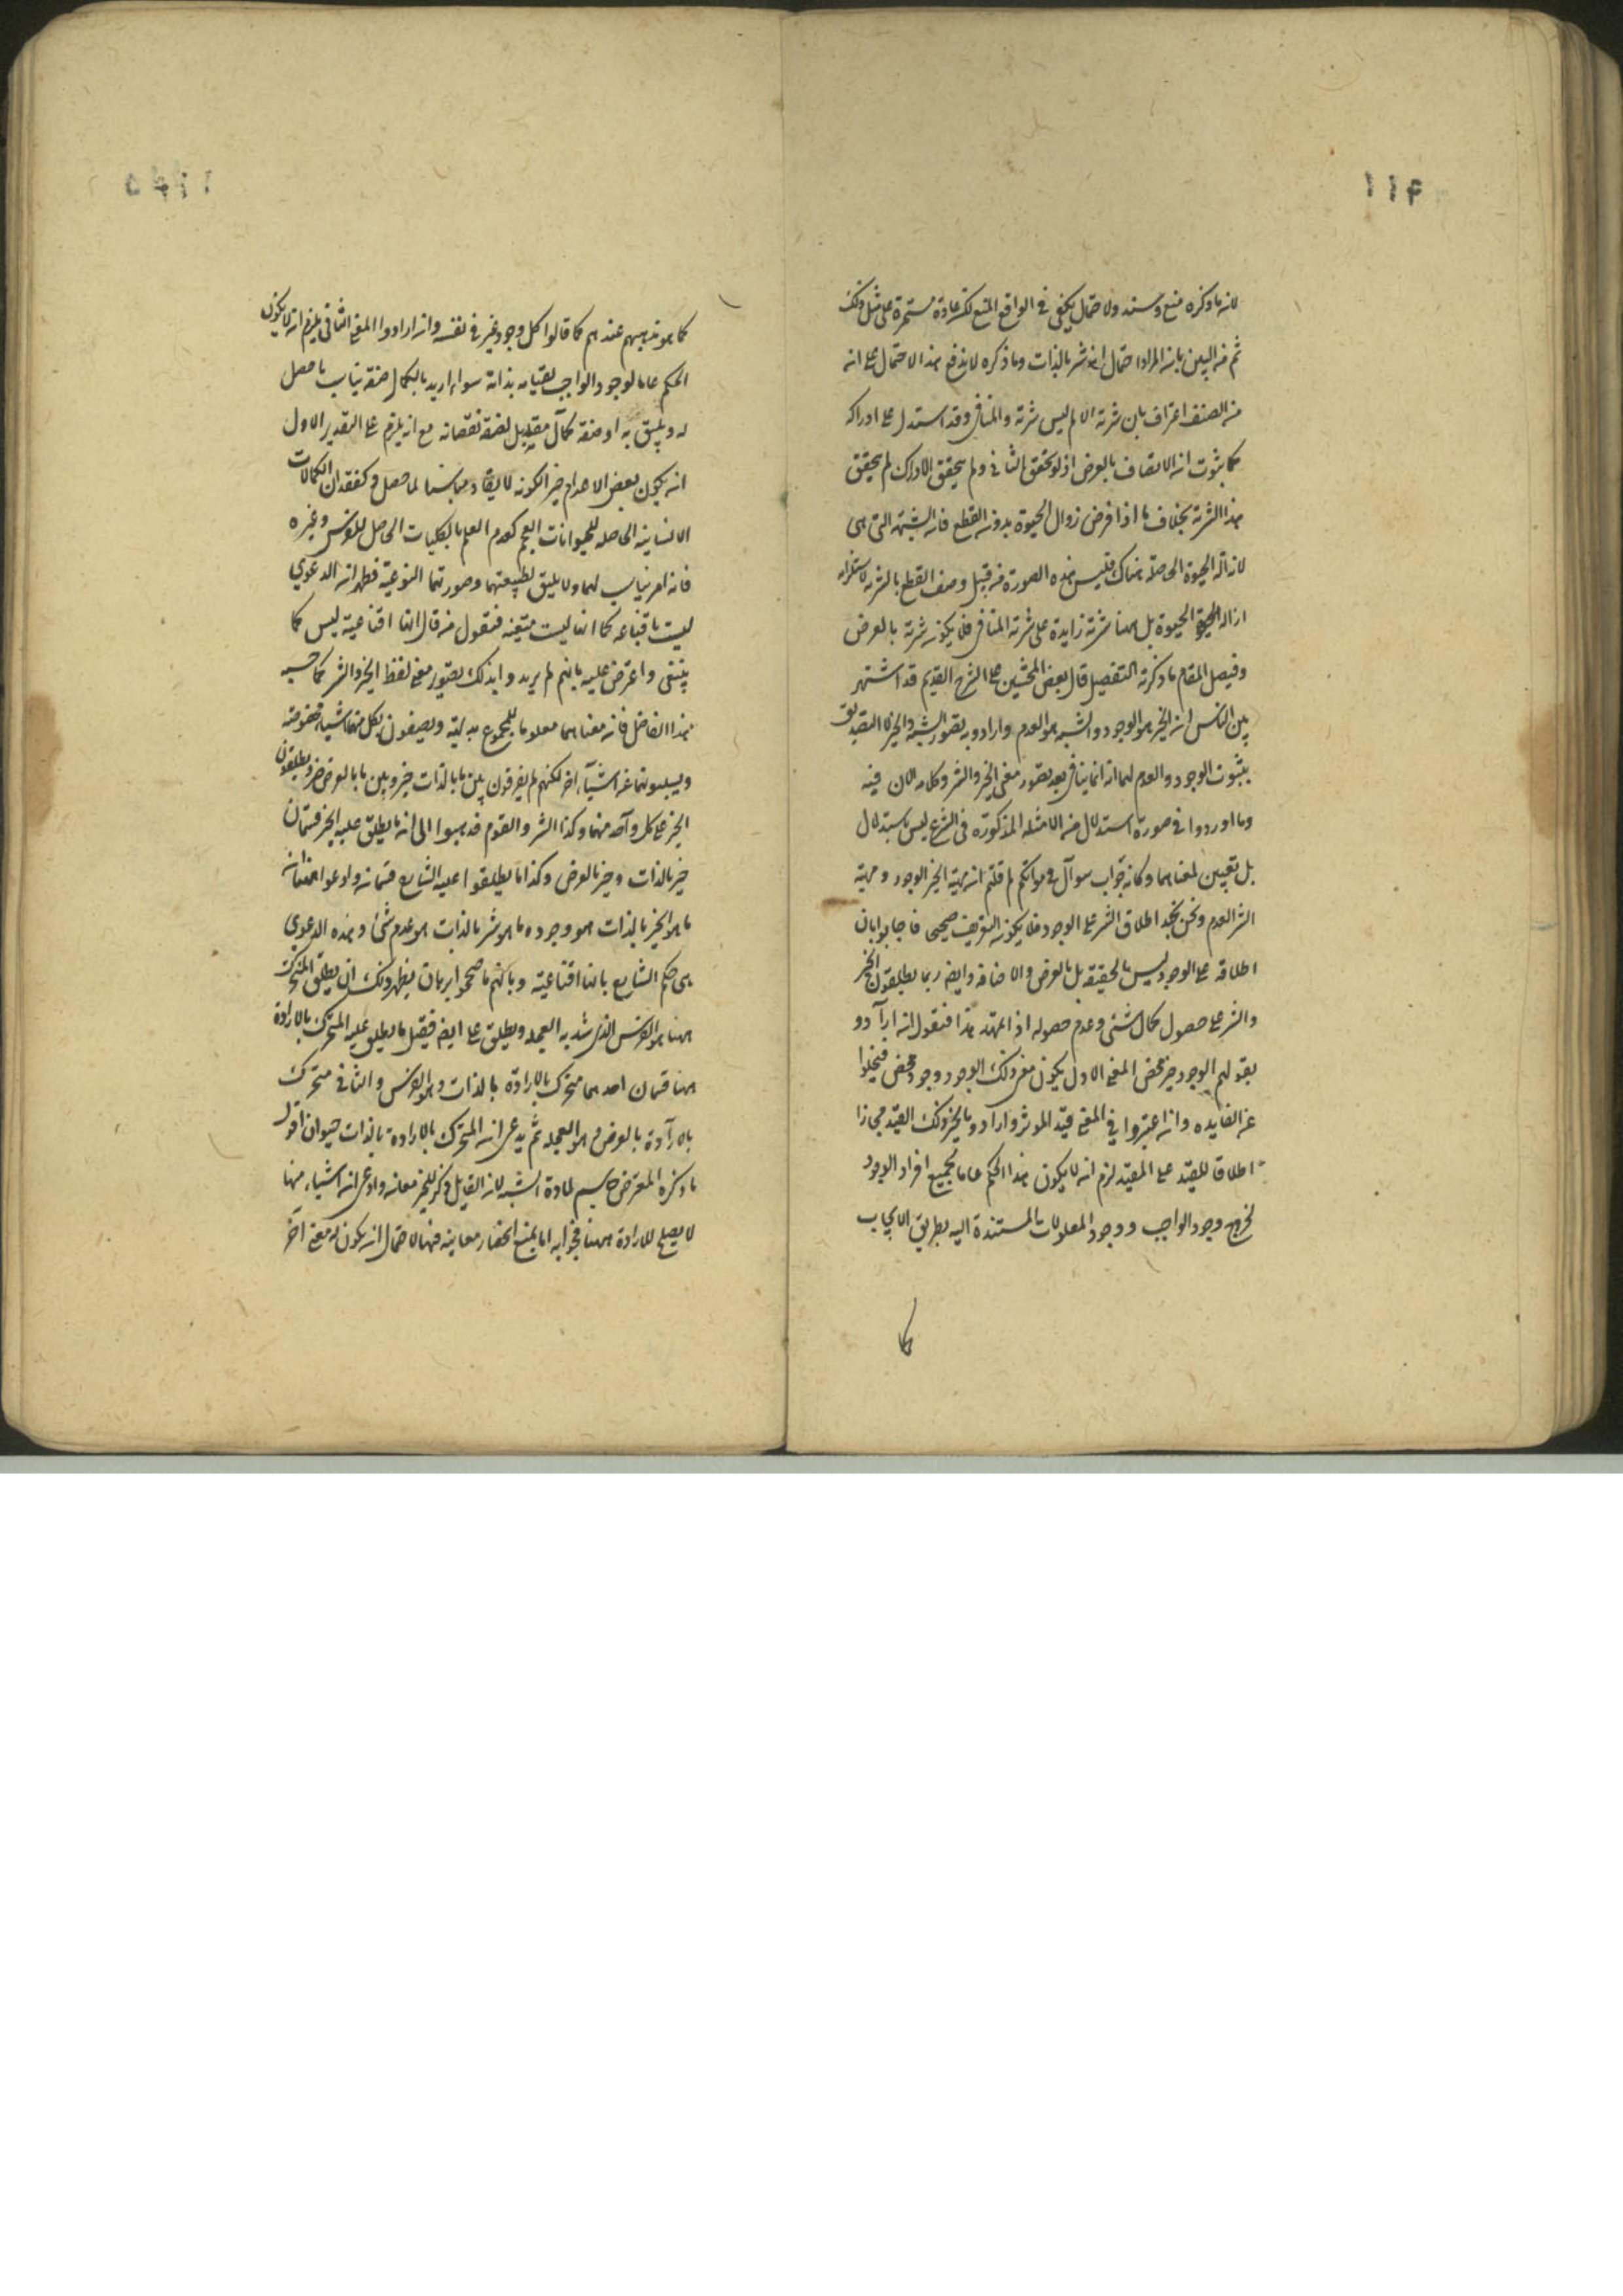 ١١۴
لانه ما ذكره منع وسند ولا حتمال يكفي في الواقع المنع لكن عادة مستمرة على مثل ذلك
ثم من البين بان المراد احتمال انه شر بالذات وما ذكره لا يدفع هذا الاحتمال على انه
من المصنف اعتراف بان شرية الالم ليس شرية والمنافي وقد استدل على ادراكه
كما بثبوت ان الاتصاف بالعرض اذ لو تحقق الثاني ولم يتحقق الادراك لم يتحقق
هذا الشرية بخلاف ما اذا فرض زوال الحيوة بدونه القطع فانه الشية التي هي
لازالة الحيوة الحاصلة هناك فليس هذه الصورة من قبيل وصف القطع بالشرية لاستلزامه
ازالة الحيوة بل ههنا شرية زايدة على شرية المنافي فلا يكون شرية بالعرض
وفيصل المقام ما ذكرته التفصيل قال بعض المحشين على الشرح القديم قد اشتهر
بين الناس ان الخير هو الوجود والشر هو العدم وارادو به تصور الشر والخير لا التصديق
بثبوت الوجود والعدم لهما انه انما ينافي بعد تصور معنى الخير والشر وكلامه الان فيه
وما اوردوا في صورة استدلال من الامثله المذكورة في الشرع ليس باستدلال
بل تعيين لمعناهما وكانه جواب سوآل هو انكم لم قلتم ان مهية الخير الوجود ومهية
الشر العدم ونحن نجد اطلاق الشر على الوجود فلا يكون التعريف صحيحى فاجابوا بان
اطلاقه على الوجود ليس بالحقيقة بل بالعرض والاضافه وايضا ربما يطلقون الخير
والشر على حصول كمال لشئى وعدم حصوله اذا تمهد هذا فنقول انه ارآدوا
بقولهم الوجود خير محض المعنى الاول يكون معنى ذلك الوجود وجود محض فيخلوا
عن الفايده وان اعتبروا في المعنى قيد الموثر وارادو بالخير ذلك القيد مجازا
اطلاقا للمقيد على المقيد لزم انه لا يكون هذا الحكم عاما لجميع افراد الوجود
لخروج وجود الواجب ووجود المعلولات المستندة اليه بطريق الايجاب
كما هو مذهبهم عندهم كما قالوا كل وجود خير في نفسه وان ارادوا المعنى الثاني يلزم ان لا يكون
الحكم عاما لوجود الواجب لقيامه بذاته سواء اريد بالكمال صفة يناسب ما حصل
له ويليق به او صفة كمال مقابل لصفة نقصانه مع انه يلزم على التقدير الاول
انه يكون بعض الاعدام خير الكونه لايقا ومناسبا لما حصل وكفقدان الكمالات
الانسانية الحاصله للحيوانات العجم كعدم العلم بالكليات الحاصل للفرس وغيره
فانه امر يناسب لهما ولا يليق لطبيعتهما وصورتهما النوعية فظهر ان الدعوي
ليست باقناعه كما انها ليست متيقنه فنقول من قال انها اقناعية ليس كما
ينبغي واعترض عليه بانهم لم يريدوا بذلك تصوير معنى لفظ الخير والشر كما حسبه
هذا الفاضل فانه معناهما معلوم للجموع بديهة ويصفون بكل منهما اشياء مخصوصه
ويسلبونهما عن اشيآء اخر لكنهم لم يفرقون بين ما بالذات خير وبين ما بالعرض خير ويطلقون
الخير على كل وآحد منهما وكذا الشر والقوم ذهبوا الى انه ما يطلق عليه الخير قسمان
خير بالذات وخير بالعرض وكذا ما يطلقوا عليه الشر ايضا قسمان وادعوا
ما هو الخير بالذات هو وجود وما هو شر بالذات هو عدم شئ وهذه الدعوي
هى حكم الشارح بانها اقناعية وبانهم ما صححوا برهان يظهر ذلك ان يطلق المتحرك
ههنا هو الفرس الذي شد به العجله ويطلق على ايضا فيقل ما يطلق عليه المتحرك بالارادة
ههنا قسمان احدهما متحرك بالارادة بالذات وهو الفرس والثاني متحرك
بالارآدة بالعرض وهو العجله ثم يدعى ان المتحرك بالارادة بالذات حيوان اقول
ما ذكره المعترض حاسم لمادة الشبه لانه القايل ذكر للخير معانه وادعى انه اشياء منها
لا يصلح للارادة ههنا فجوابه اما بمنع انحصار معاينه فيها لاحتمال انه يكون له معنى آخر